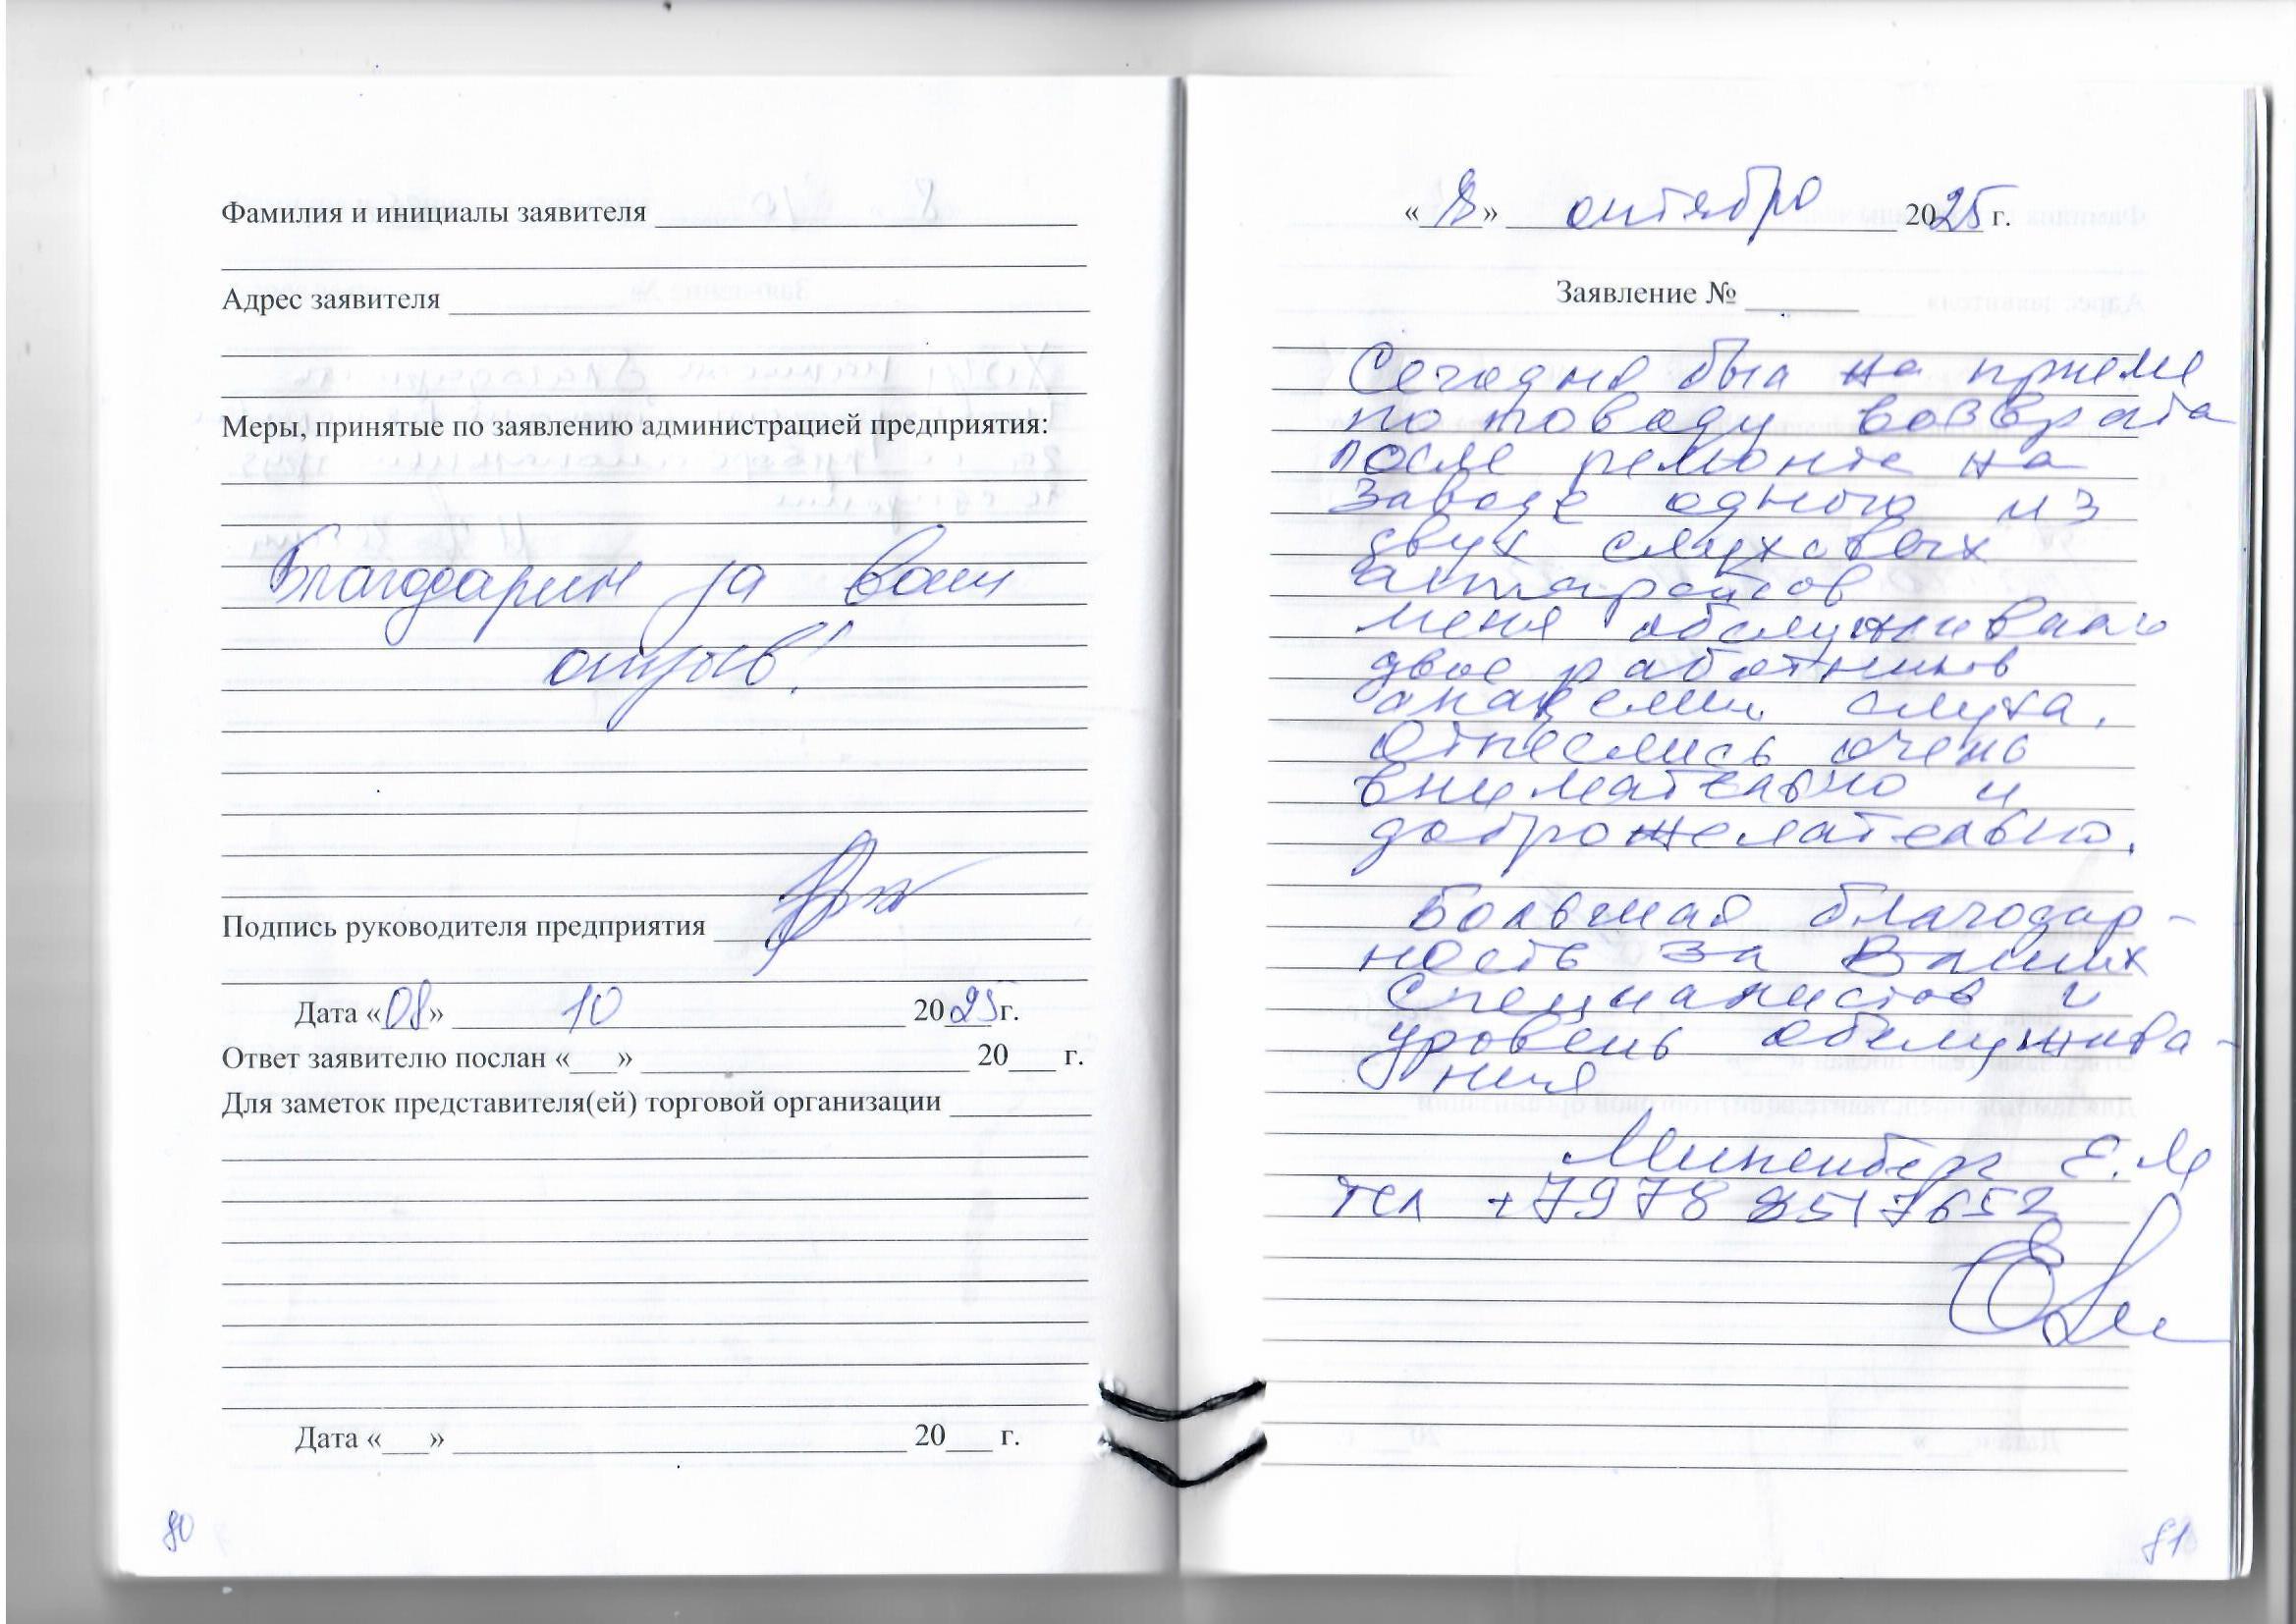 Фамилия и инициалы заявителя
Адрес заявителя
Меры, принятые по заявлению администрацией предприятия:
Благодарим за ваш
отзыв!
Подпись руководителя предприятия
Дата «08» 10 2025 г.
Ответ заявителю послан «___» 20___ г.
Для заметок представителя(ей) торговой организации
Дата «___» 20___ г.
80
«8» октября 2025 г.
Заявление №
Сегодня был на приеме
по поводу возврата
после ремонта на
заводе одного из
двух слуховых
аппаратов
меня обслуживали
двое работников
академии слуха.
Отнеслись очень
внимательно и
доброжелательно.
Большая благодар-
ность за Ваших
специалистов и
уровень обслужива-
ния
Е.М
тел +7978 8517652
81